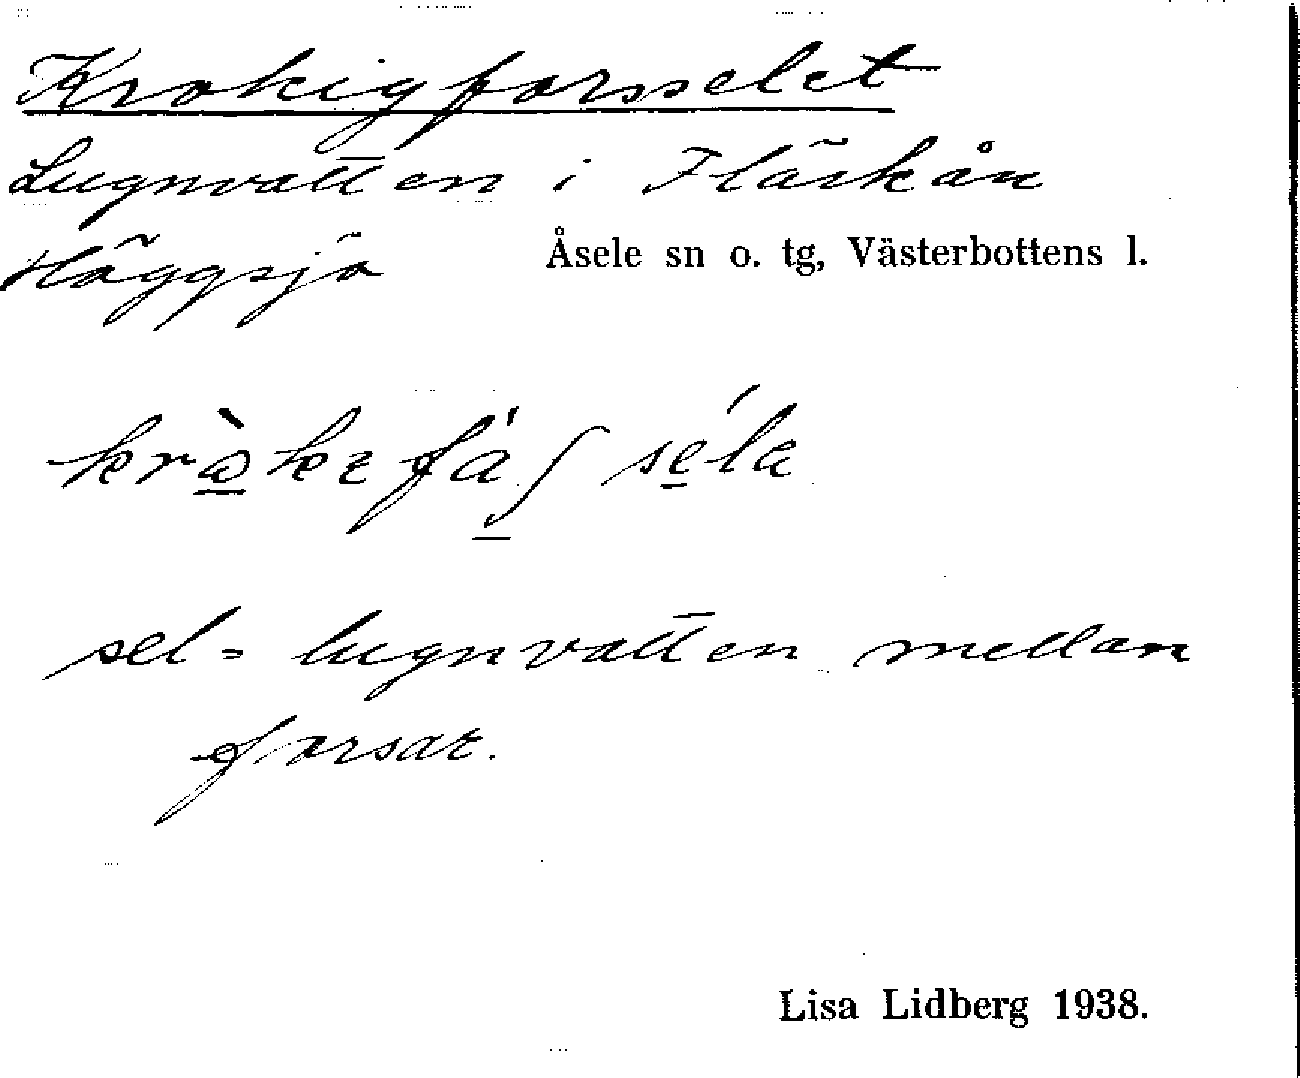 Krokigforsselet
Lugnvatten i Fläskån
Häggsjö
Åsele sn o. tg, Västerbottens l.
sel = lugnvatten mellan
forsar.
Lisa Lidberg 1938.